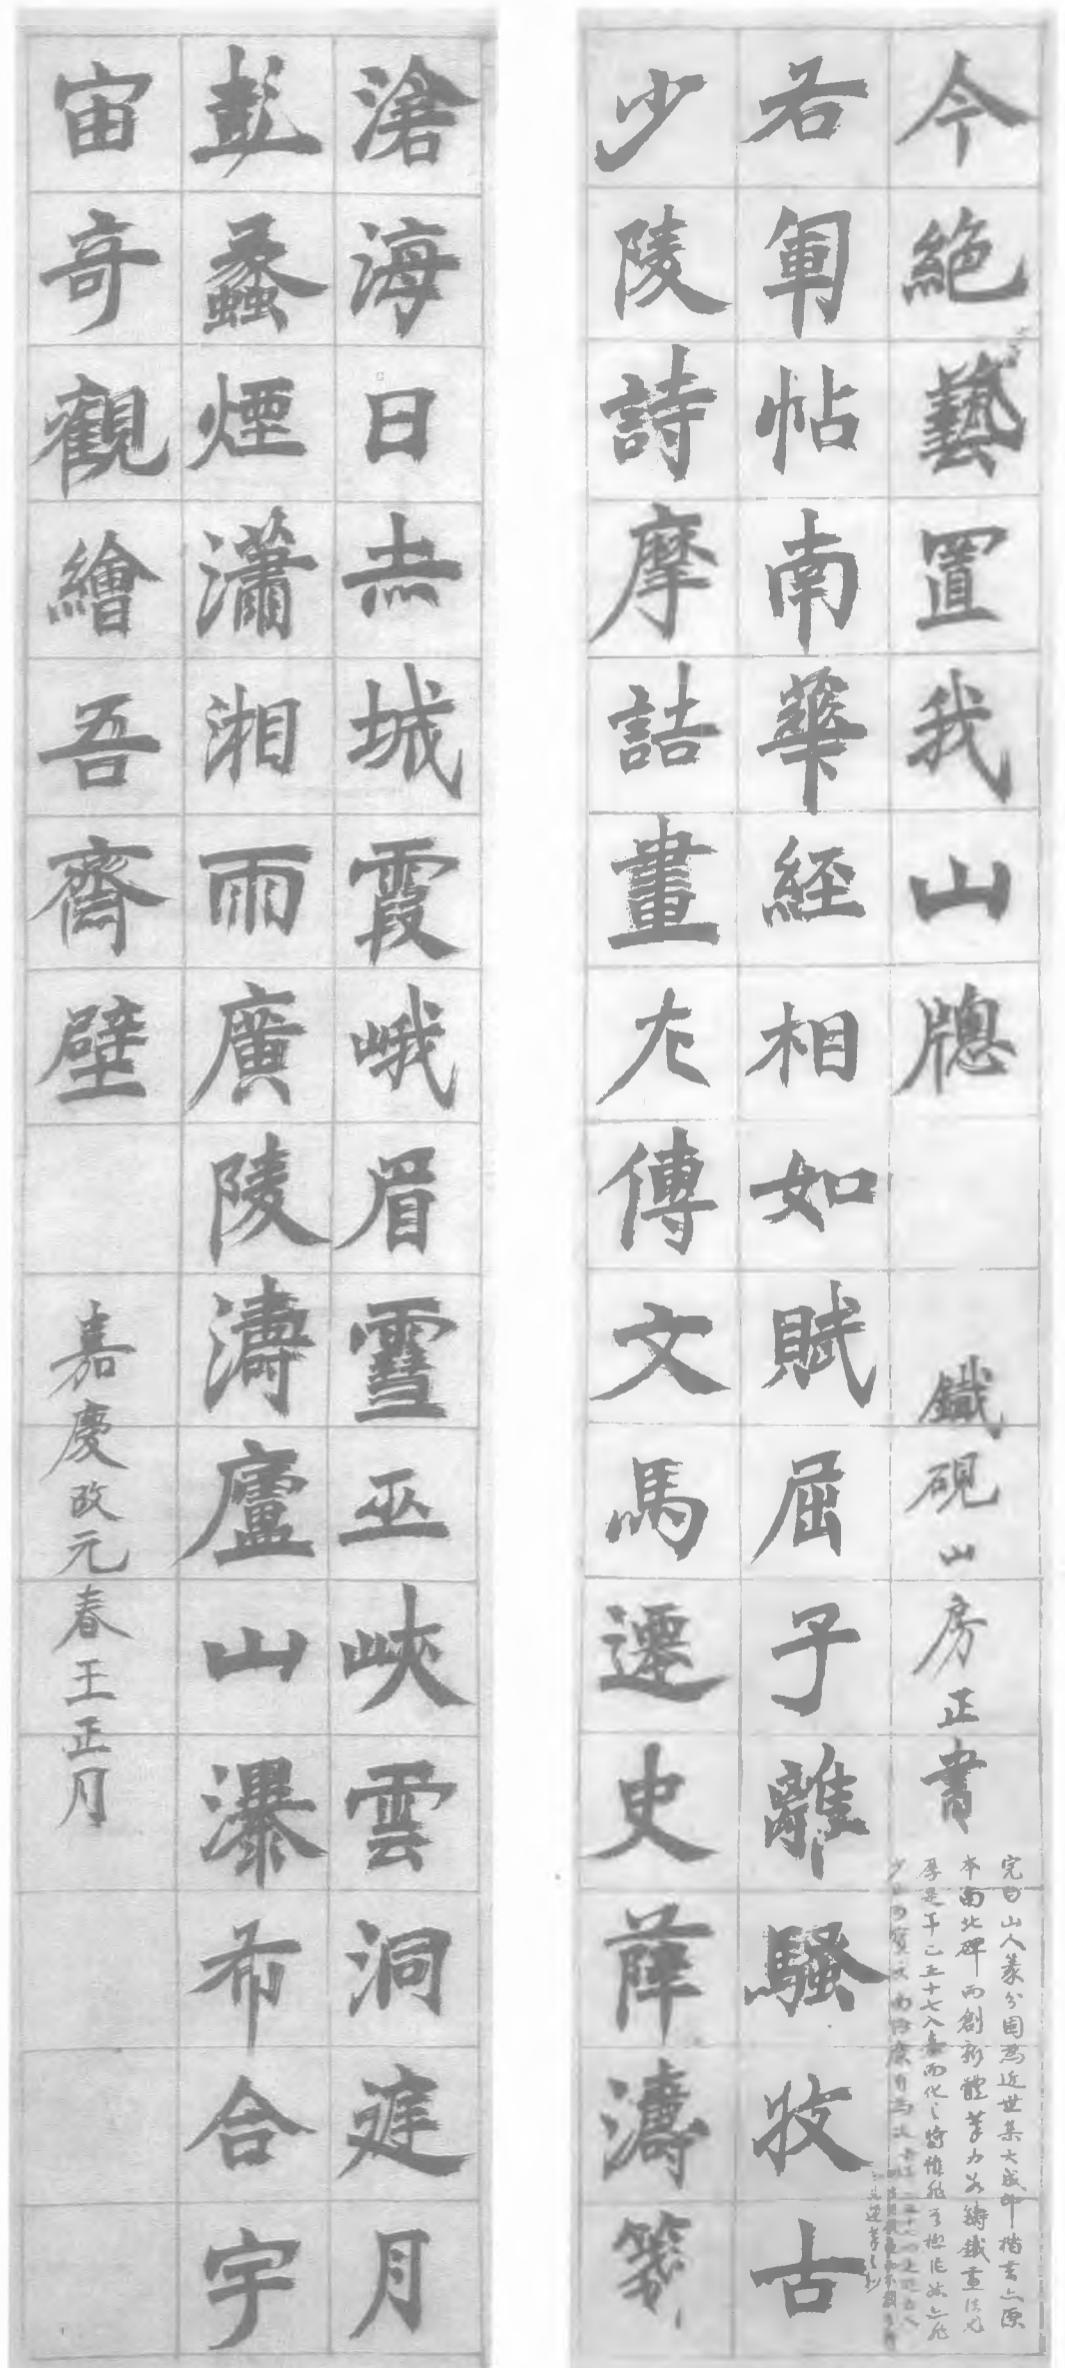 滄海日赤城霞峨眉雪巫峽雲洞庭月
彭蠡煙瀟湘雨廣陵濤廬山瀑布合宇
宙奇觀繪吾齋壁
嘉慶改元春王正月
少陵詩摩詰畫左傳文馬遷史薛濤箋
右軍帖南華經相如賦屈子離騷收古
今絕藝置我山牕
鐵硯山房正書
完白山人篆分固為近世集大成即楷書亦原
本南北碑而創新體筆力如鑄鐵